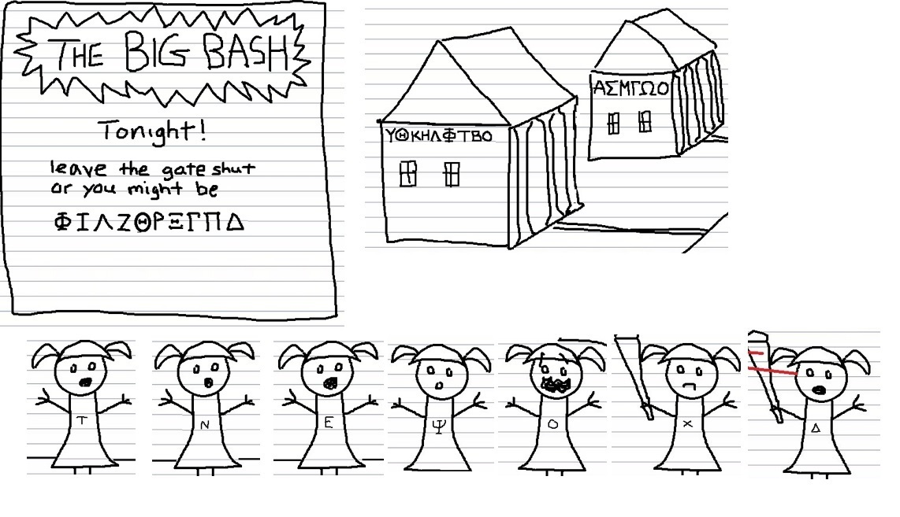 THE BIG BASH
Tonight!
leave the gate shut
or you might be
ΦΙΛΖΘΡΞΓΠΔ
ΥΘΚΗΛΦΤΒΟ
ΑΣΜΓΩΟ
Τ Ν Ε Ψ Ο Χ Δ